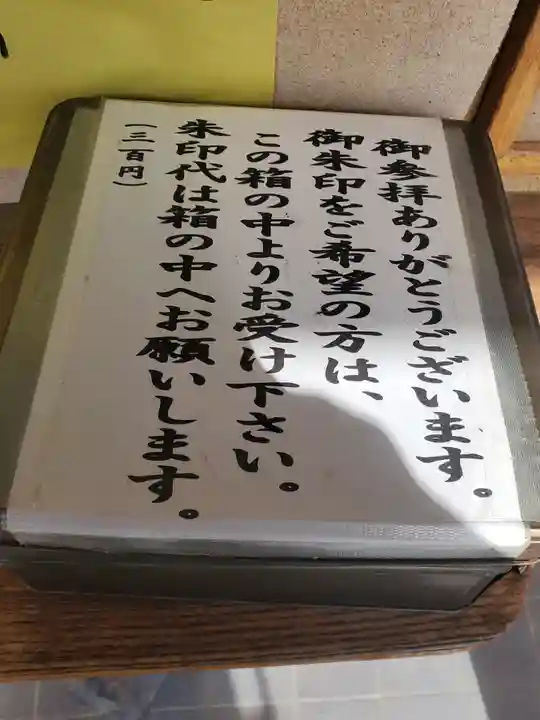 御参拝ありがとうございます。
御朱印をご希望の方は、
この箱の中よりお受け下さい。
朱印代は箱の中へお願いします。
(三百円)